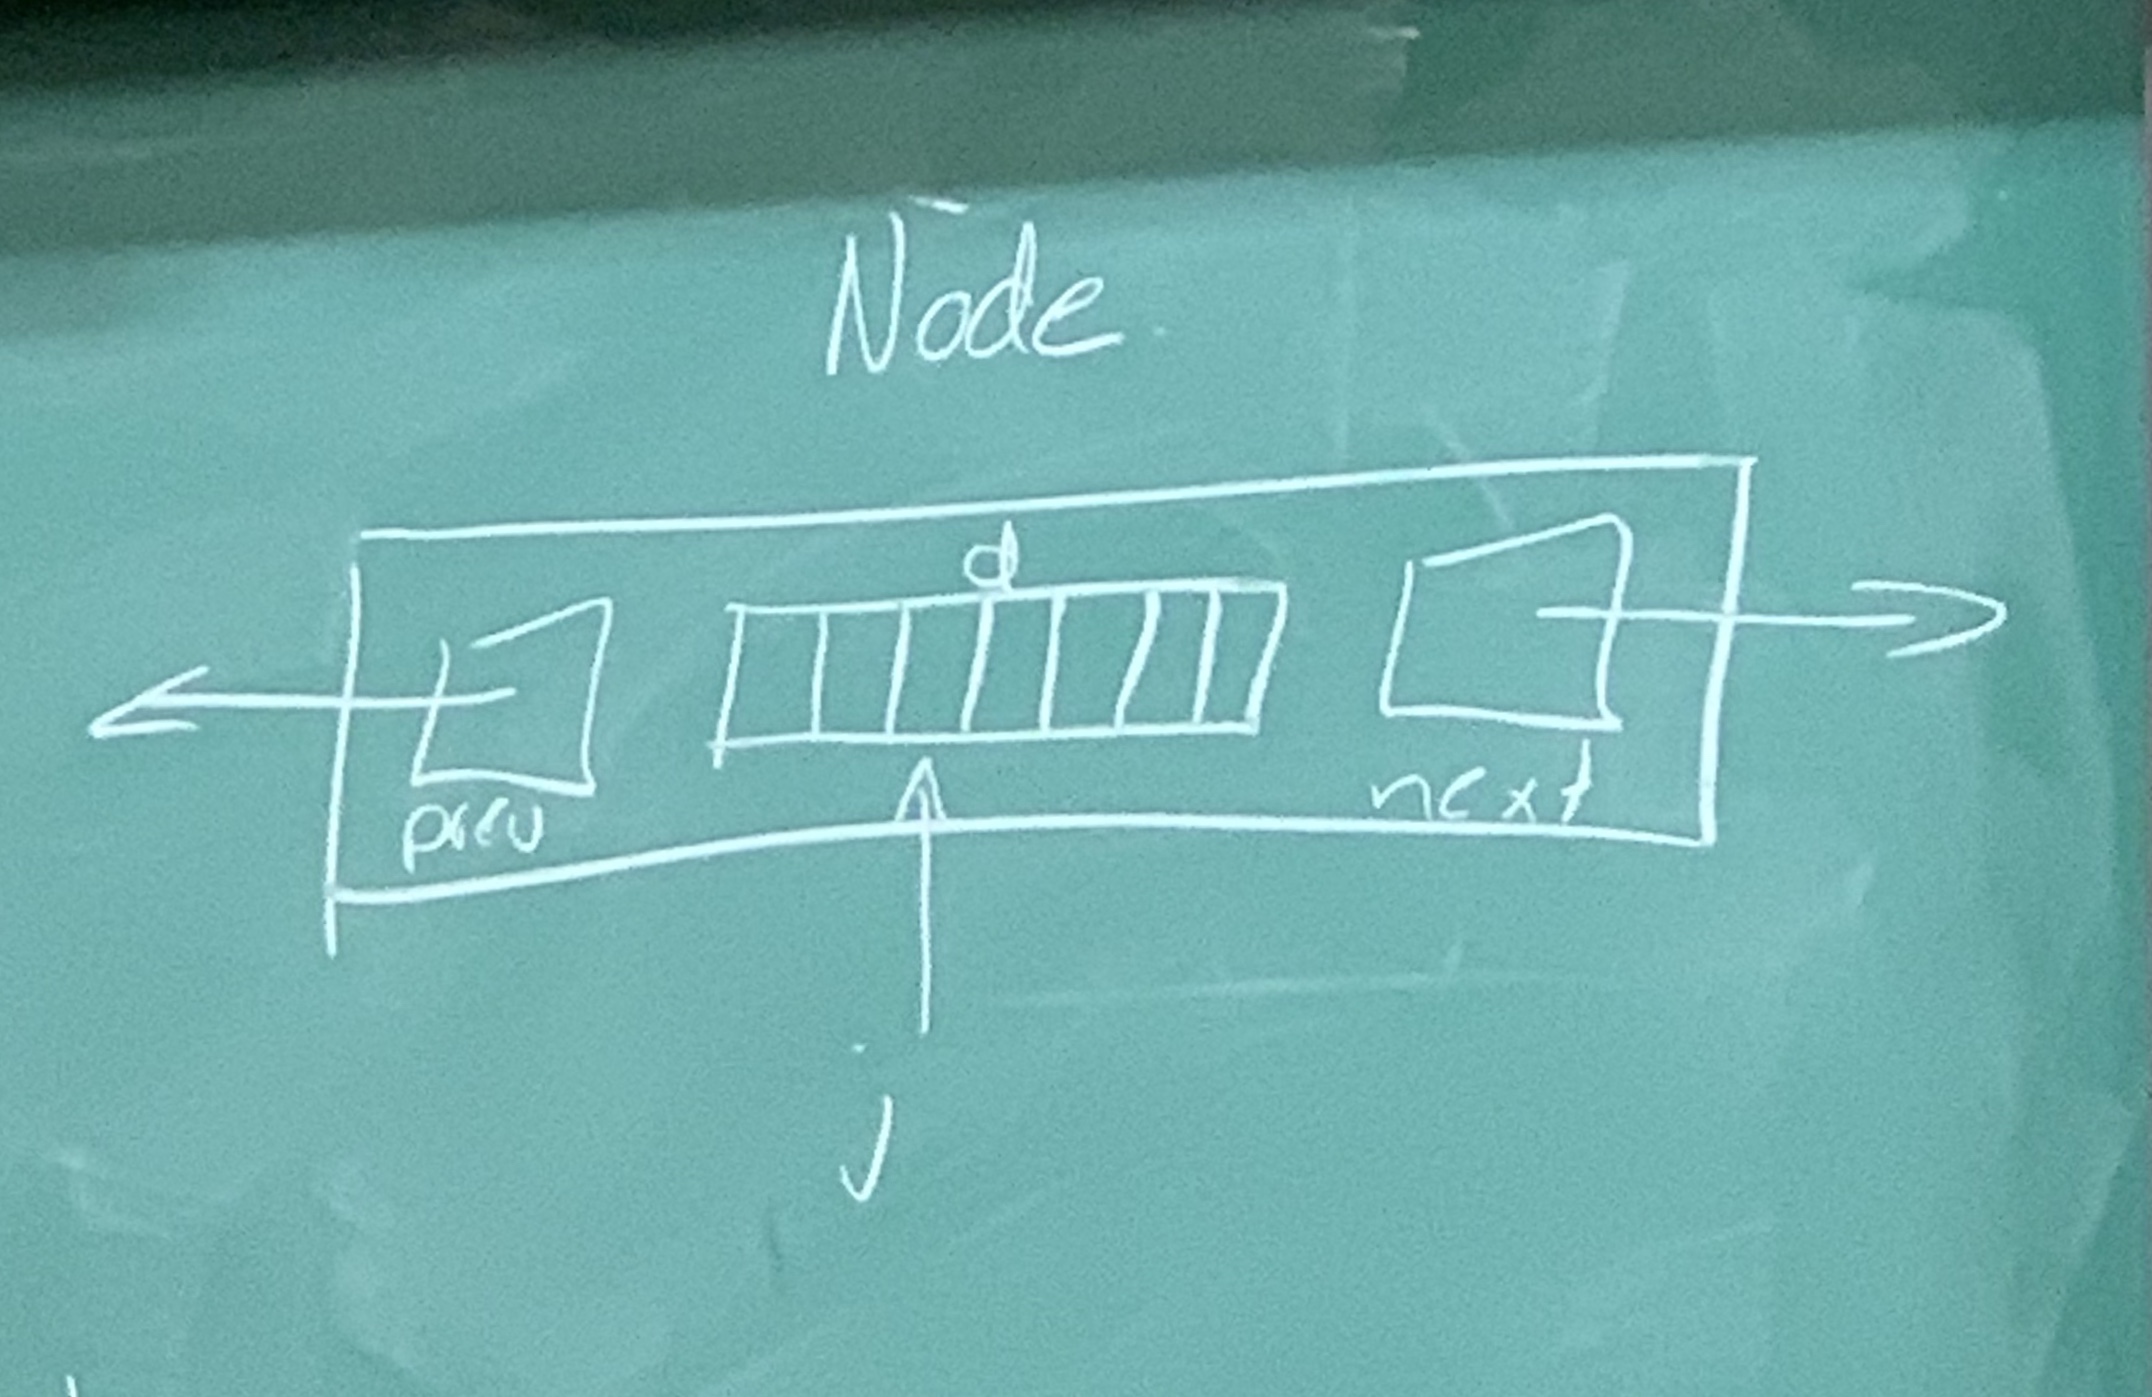 Node
d
prev
next
j